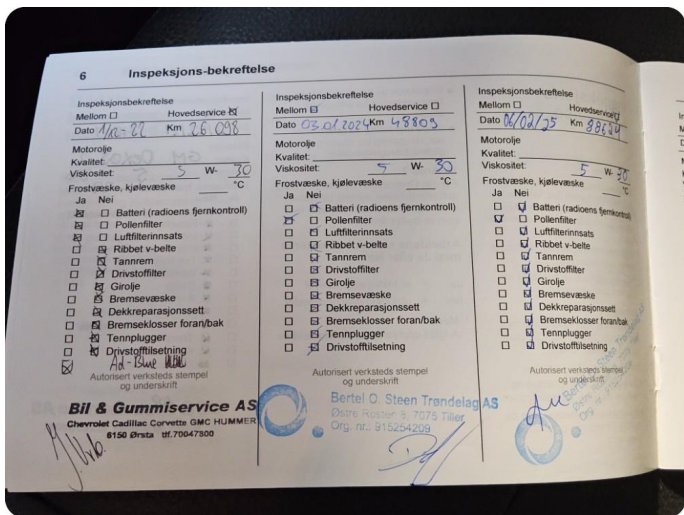 6 Inspeksjons-bekreftelse
Inspeksjonsbekreftelse
Mellom Hovedservice
Dato 1/12-22 Km 26 098
Motorolje
Kvalitet:
Viskositet: 5 W- 30
Frostvæske, kjølevæske °C
Ja Nei
Batteri (radioens fjernkontroll)
Pollenfilter
Luftfilterinnsats
Ribbet v-belte
Tannrem
Drivstoffilter
Girolje
Bremsevæske
Dekkreparasjonssett
Bremseklosser foran/bak
Tennplugger
Drivstofftilsetning
Ad-Blue
Autorisert verksteds stempel
og underskrift
Bil & Gummiservice AS
Chevrolet Cadillac Corvette GMC HUMMER
6150 Ørsta tlf.70047800
Inspeksjonsbekreftelse
Mellom Hovedservice
Dato 03.01.2024 Km 48809
Motorolje
Kvalitet:
Viskositet: 5 W- 30
Frostvæske, kjølevæske °C
Ja Nei
Batteri (radioens fjernkontroll)
Pollenfilter
Luftfilterinnsats
Ribbet v-belte
Tannrem
Drivstoffilter
Girolje
Bremsevæske
Dekkreparasjonssett
Bremseklosser foran/bak
Tennplugger
Drivstofftilsetning
Autorisert verksteds stempel
og underskrift
Bertel O. Steen Trøndelag AS
Østre Rosten 8, 7075 Tiller
Org. nr.: 915254209
Inspeksjonsbekreftelse
Mellom Hovedservice
Dato 06/02/25 Km 88624
Motorolje
Kvalitet:
Viskositet: 5 W- 30
Frostvæske, kjølevæske °C
Ja Nei
Batteri (radioens fjernkontroll)
Pollenfilter
Luftfilterinnsats
Ribbet v-belte
Tannrem
Drivstoffilter
Girolje
Bremsevæske
Dekkreparasjonssett
Bremseklosser foran/bak
Tennplugger
Drivstofftilsetning
Autorisert verksteds stempel
og underskrift